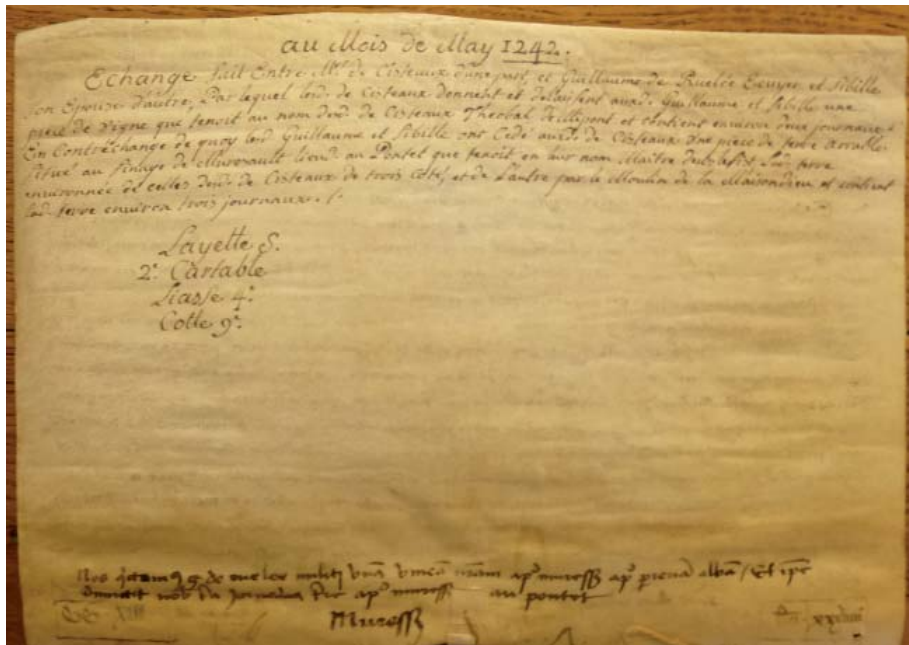 au Mois de May 1242.
Echange fait Entre Mrs. de Cisteaux d'une part, et Guillaume de Ruelée Ecuyer, et Sibille
son Epouse d'autre, Par lequel lesd. de Cisteaux donnent et delaissent auxd. Guillaume et Sibille une
piece de Vigne que tenoit au nom desd. de Cisteaux Theobal et contient environ deux journaux.
En Contréchange de quoy lesd. Guillaume et Sibille ont Cedé auxd. de Cisteaux Une piece de terre arrable
situé au finage de Muresault lieud. au Pontet que tenoit en leur nom Maitre terre
environnée de celles desd. de Cisteaux de trois coté, et de l'autre par le Moulin de la Maisondieu et contient
lad. terre environ trois journaux.
Layette S.
2e. Cartable
Liasse 4e.
Cotte 9e.
Nos g. de militi unā vineā nram ap' muress ap' albā / Et ipse
nob ap' muress au pontet
Muress